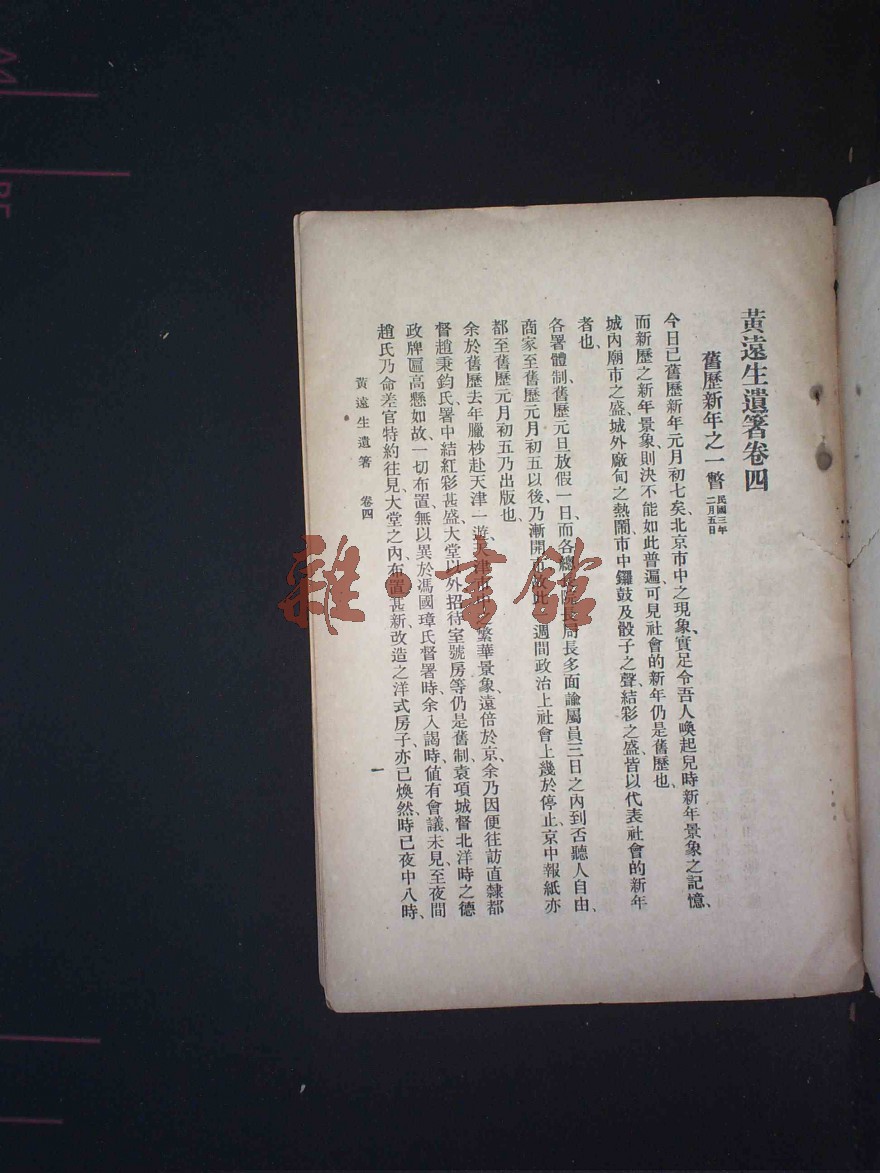 黃遠生遺箸卷四
舊歷新年之一瞥 民國三年二月五日
今日已舊歷新年元月初七矣、北京市中之現象、實足令吾人喚起兒時新年景象之記憶、
而新歷之新年景象、則決不能如此普遍、可見社會的新年仍是舊歷也、
城內廟市之盛、城外廠甸之熱鬧、市中鑼鼓及骰子之聲、結彩之盛、皆以代表社會的新年
者也、
各署體制、舊歷元旦放假一日、而各總長院長局長多面諭屬員三日之內到否聽人自由、
商家至舊歷元月初五以後、乃漸開市、故此一週間政治上社會上幾於停止、京中報紙亦
都至舊歷元月初五乃出版也、
余於舊歷去年臘杪赴天津一游、天津市中之繁華景象、遠倍於京、余乃因便往訪直隸都
督趙秉鈞氏、署中結紅彩甚盛、大堂以外招待室號房等仍是舊制、袁項城督北洋時之德
政牌匾高懸如故、一切布置、無以異於馮國璋氏督署時、余入謁時、値有會議、未見、至夜間
趙氏乃命差官特約往見、大堂之內布置甚新、改造之洋式房子、亦已煥然、時已夜中八時、
黃遠生遺箸 卷四
一
雜·書館